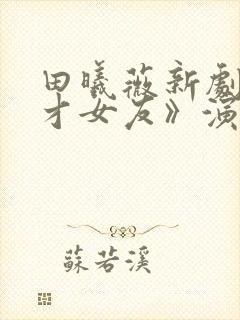 田曦薇新劇
才女友》演
蘇若溪